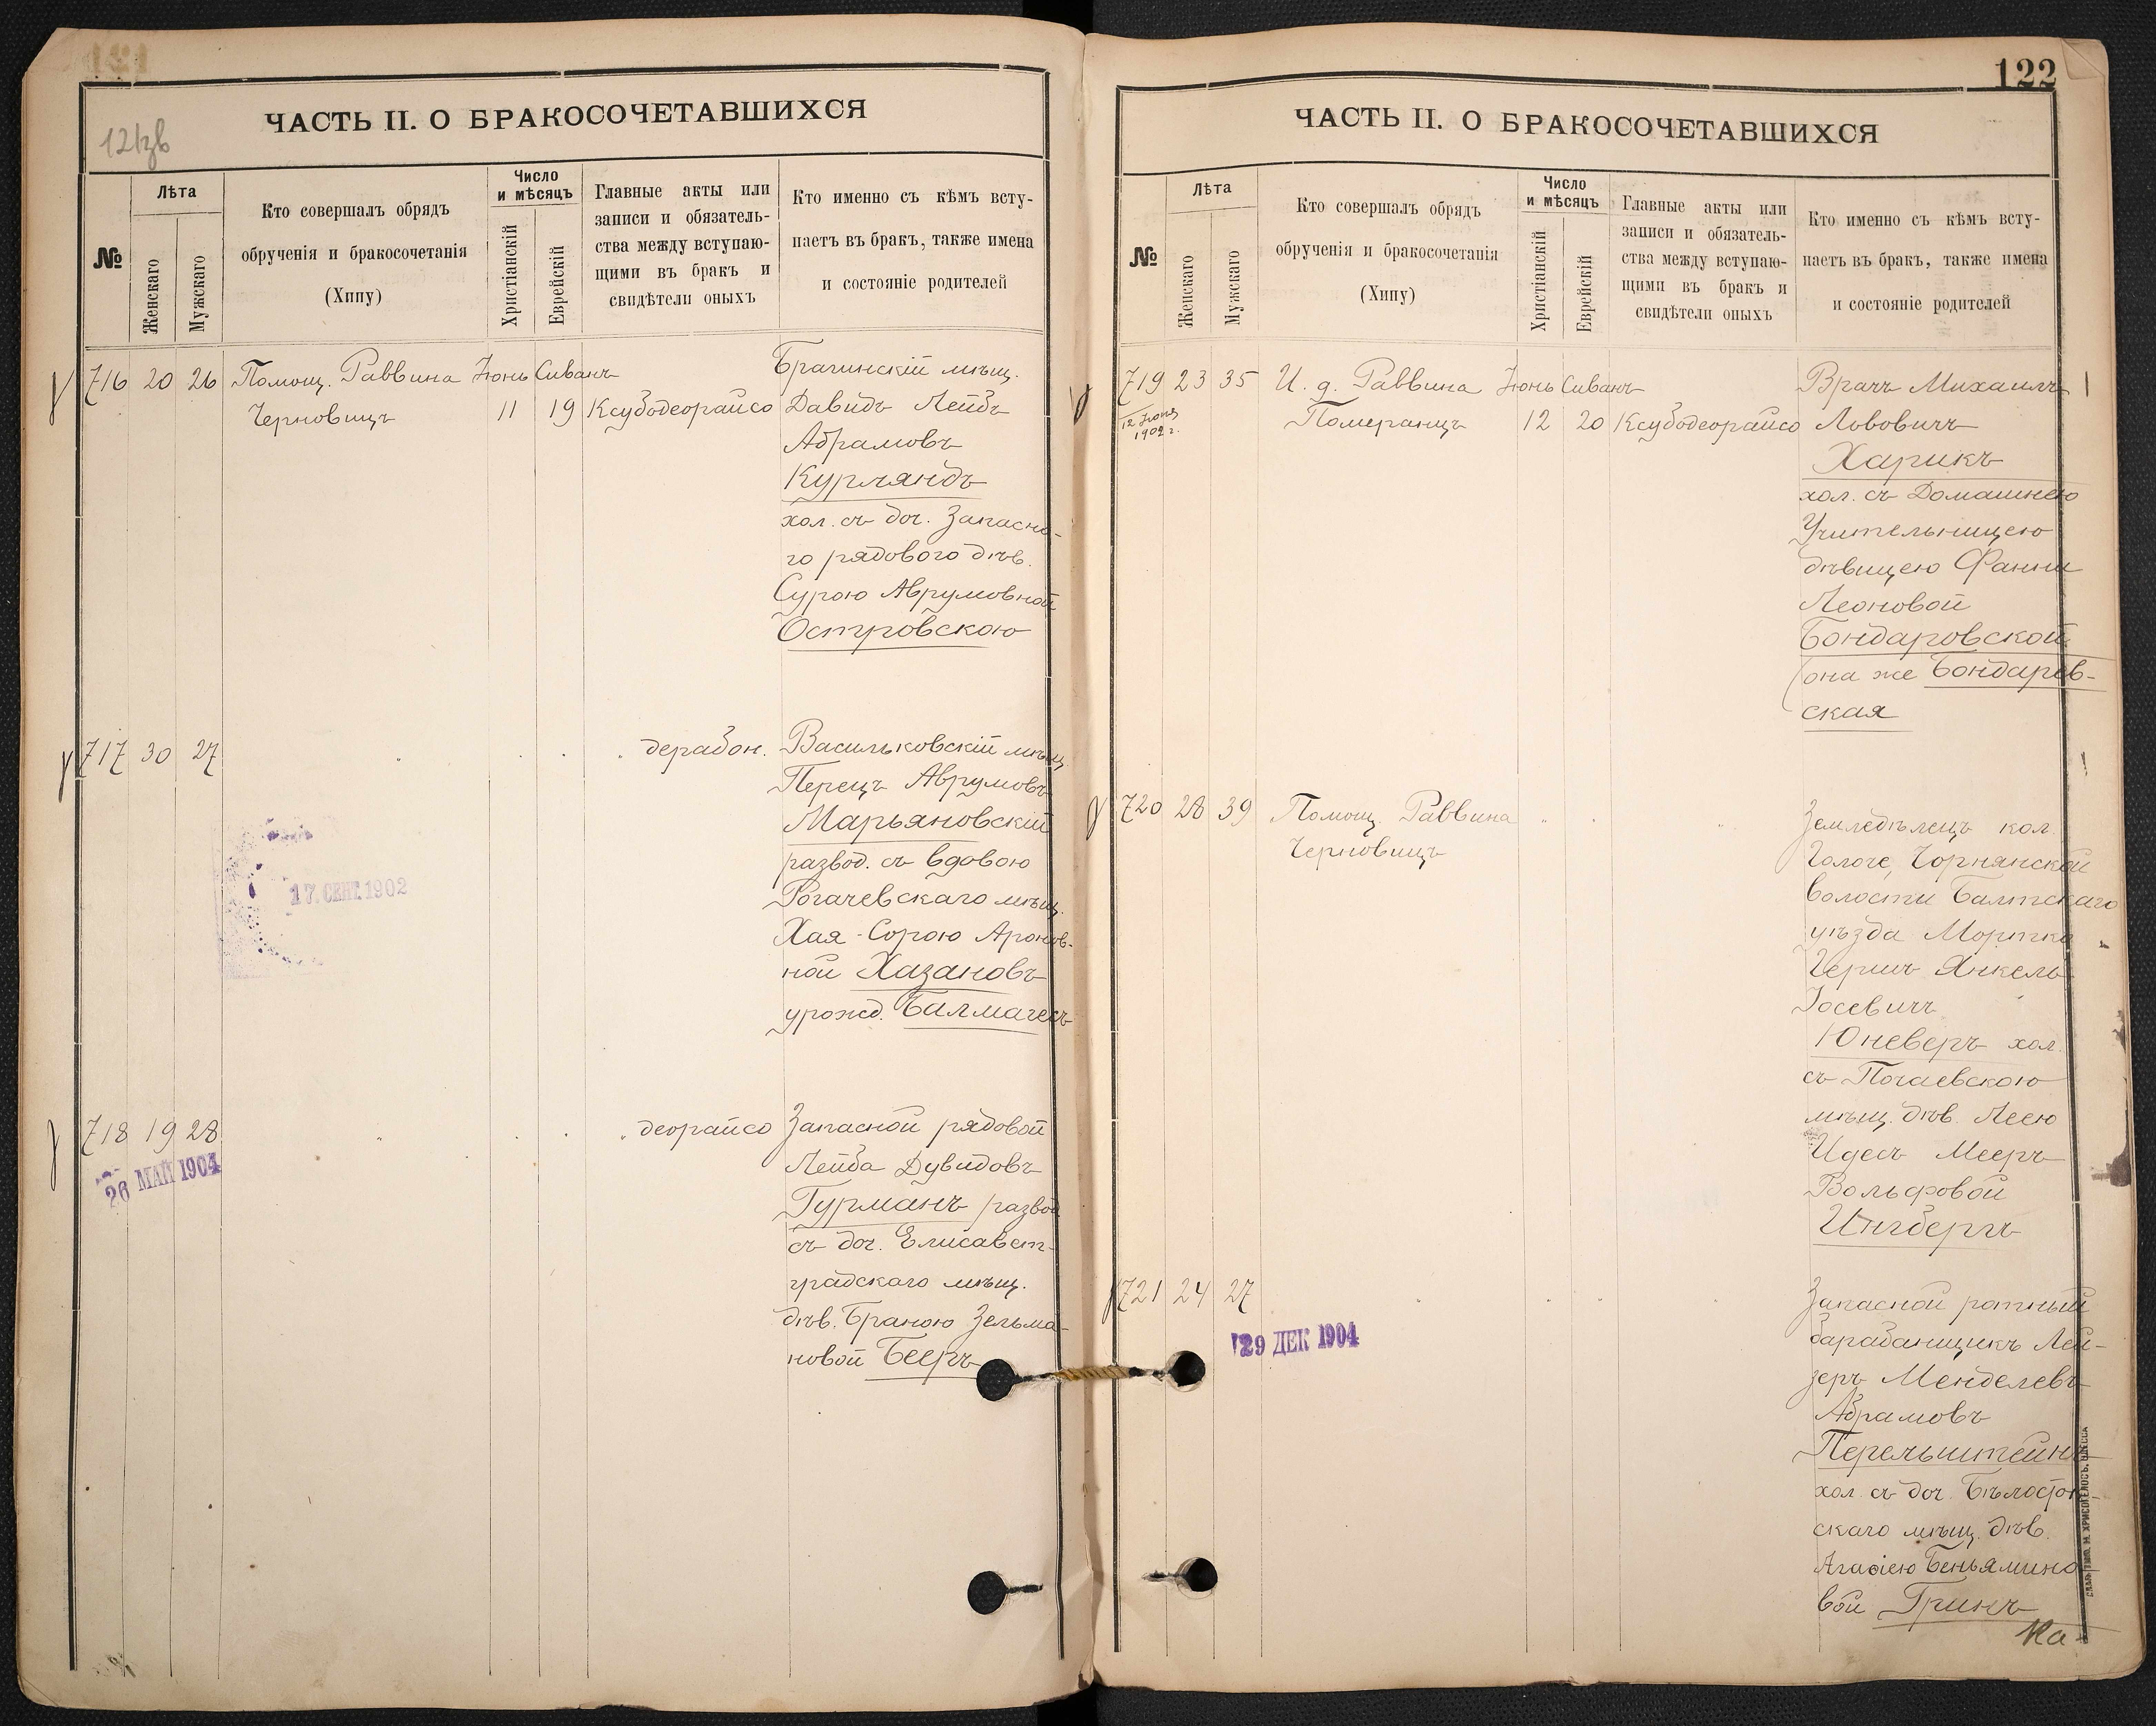 121
12/зв
ЧАСТЬ II. О БРАКОСОЧЕТАВШИХСЯ
№
Лѣта
Женскаго
Мужскаго
Кто совершалъ обрядъ
обрученія и бракосочетанія
(Хипу)
Число
и мѣсяцъ
Христіанскій
Еврейскій
Главные акты или
записи и обязатель-
ства между вступаю-
щими въ бракъ и
свидѣтели оныхъ
Кто именно съ кѣмъ всту-
паетъ въ бракъ, также имена
и состояніе родителей
716 20 26 Помощ. Раввина Іюнь Сиванъ Брагинскій мѣщ.
Черновицъ 11 19 Ксубодеорайсо Давидъ Лейбъ
Абрамовъ
Курляндъ
хол. съ доч. Запасно-
го рядового дѣв.
Сурою Аврумовной
Островскою
717 30 27 дерабон. Васильковскій мѣщ
Перецъ Аврумовъ
Марьяновскій
развод. съ вдовою
Рогачевскаго мѣщ.
Хая-Сорою Аронов-
ной Хазановъ
урожд. Балмагесъ
17. СЕНТ. 1902
718 19 28 деорайсо Запасной рядовой
26 МАЙ 1904
Лейба Дувидовъ
Гурманъ развод
съ доч. Елисавет-
градскаго мѣщ.
дѣв. Браною Зельма-
новой Бееръ
122
ЧАСТЬ II. О БРАКОСОЧЕТАВШИХСЯ
№
Лѣта
Женскаго
Мужскаго
Кто совершалъ обрядъ
обрученія и бракосочетанія
(Хипу)
Число
и мѣсяцъ
Христіанскій
Еврейскій
Главные акты или
записи и обязатель-
ства между вступаю-
щими въ бракъ и
свидѣтели оныхъ
Кто именно съ кѣмъ всту-
паетъ въ бракъ, также имена
и состояніе родителей
719 23 35 И. д. Раввина Іюнь Сиванъ Врачъ Михаилъ
12 Іюня
1902 г.
Померанцъ 12 20 Ксубодеорайсо Львовичъ
Харикъ
хол. съ Домашнею
Учительницею
дѣвицею Фанни
Леоновой
Бондаровской
(она же Бондарев-
ская
720 28 39 Помощ. Раввина Земледѣлецъ кол.
Черновицъ Голоче, Чорнянской
волости Балтскаго
уѣзда Мортко
Гершъ Янкель
Іосевичъ
Юневеръ хол.
съ Почаевскою
мѣщ. дѣв. Леею
Идесъ Мееръ
Вольфовой
Ингберъ
721 24 27 Запасной ротный
29 ДЕК 1904
барабанщикъ Лей-
зеръ Менделевъ
Абрамовъ
Перельштейнъ
хол. съ доч. Бѣлосток-
скаго мѣщ. дѣв.
Агафіею Беньямино
вой Гринъ
Ка-
СЛАВ. ТИПО. Н. ХРИСОГЕЛОСЪ. ОДЕССА